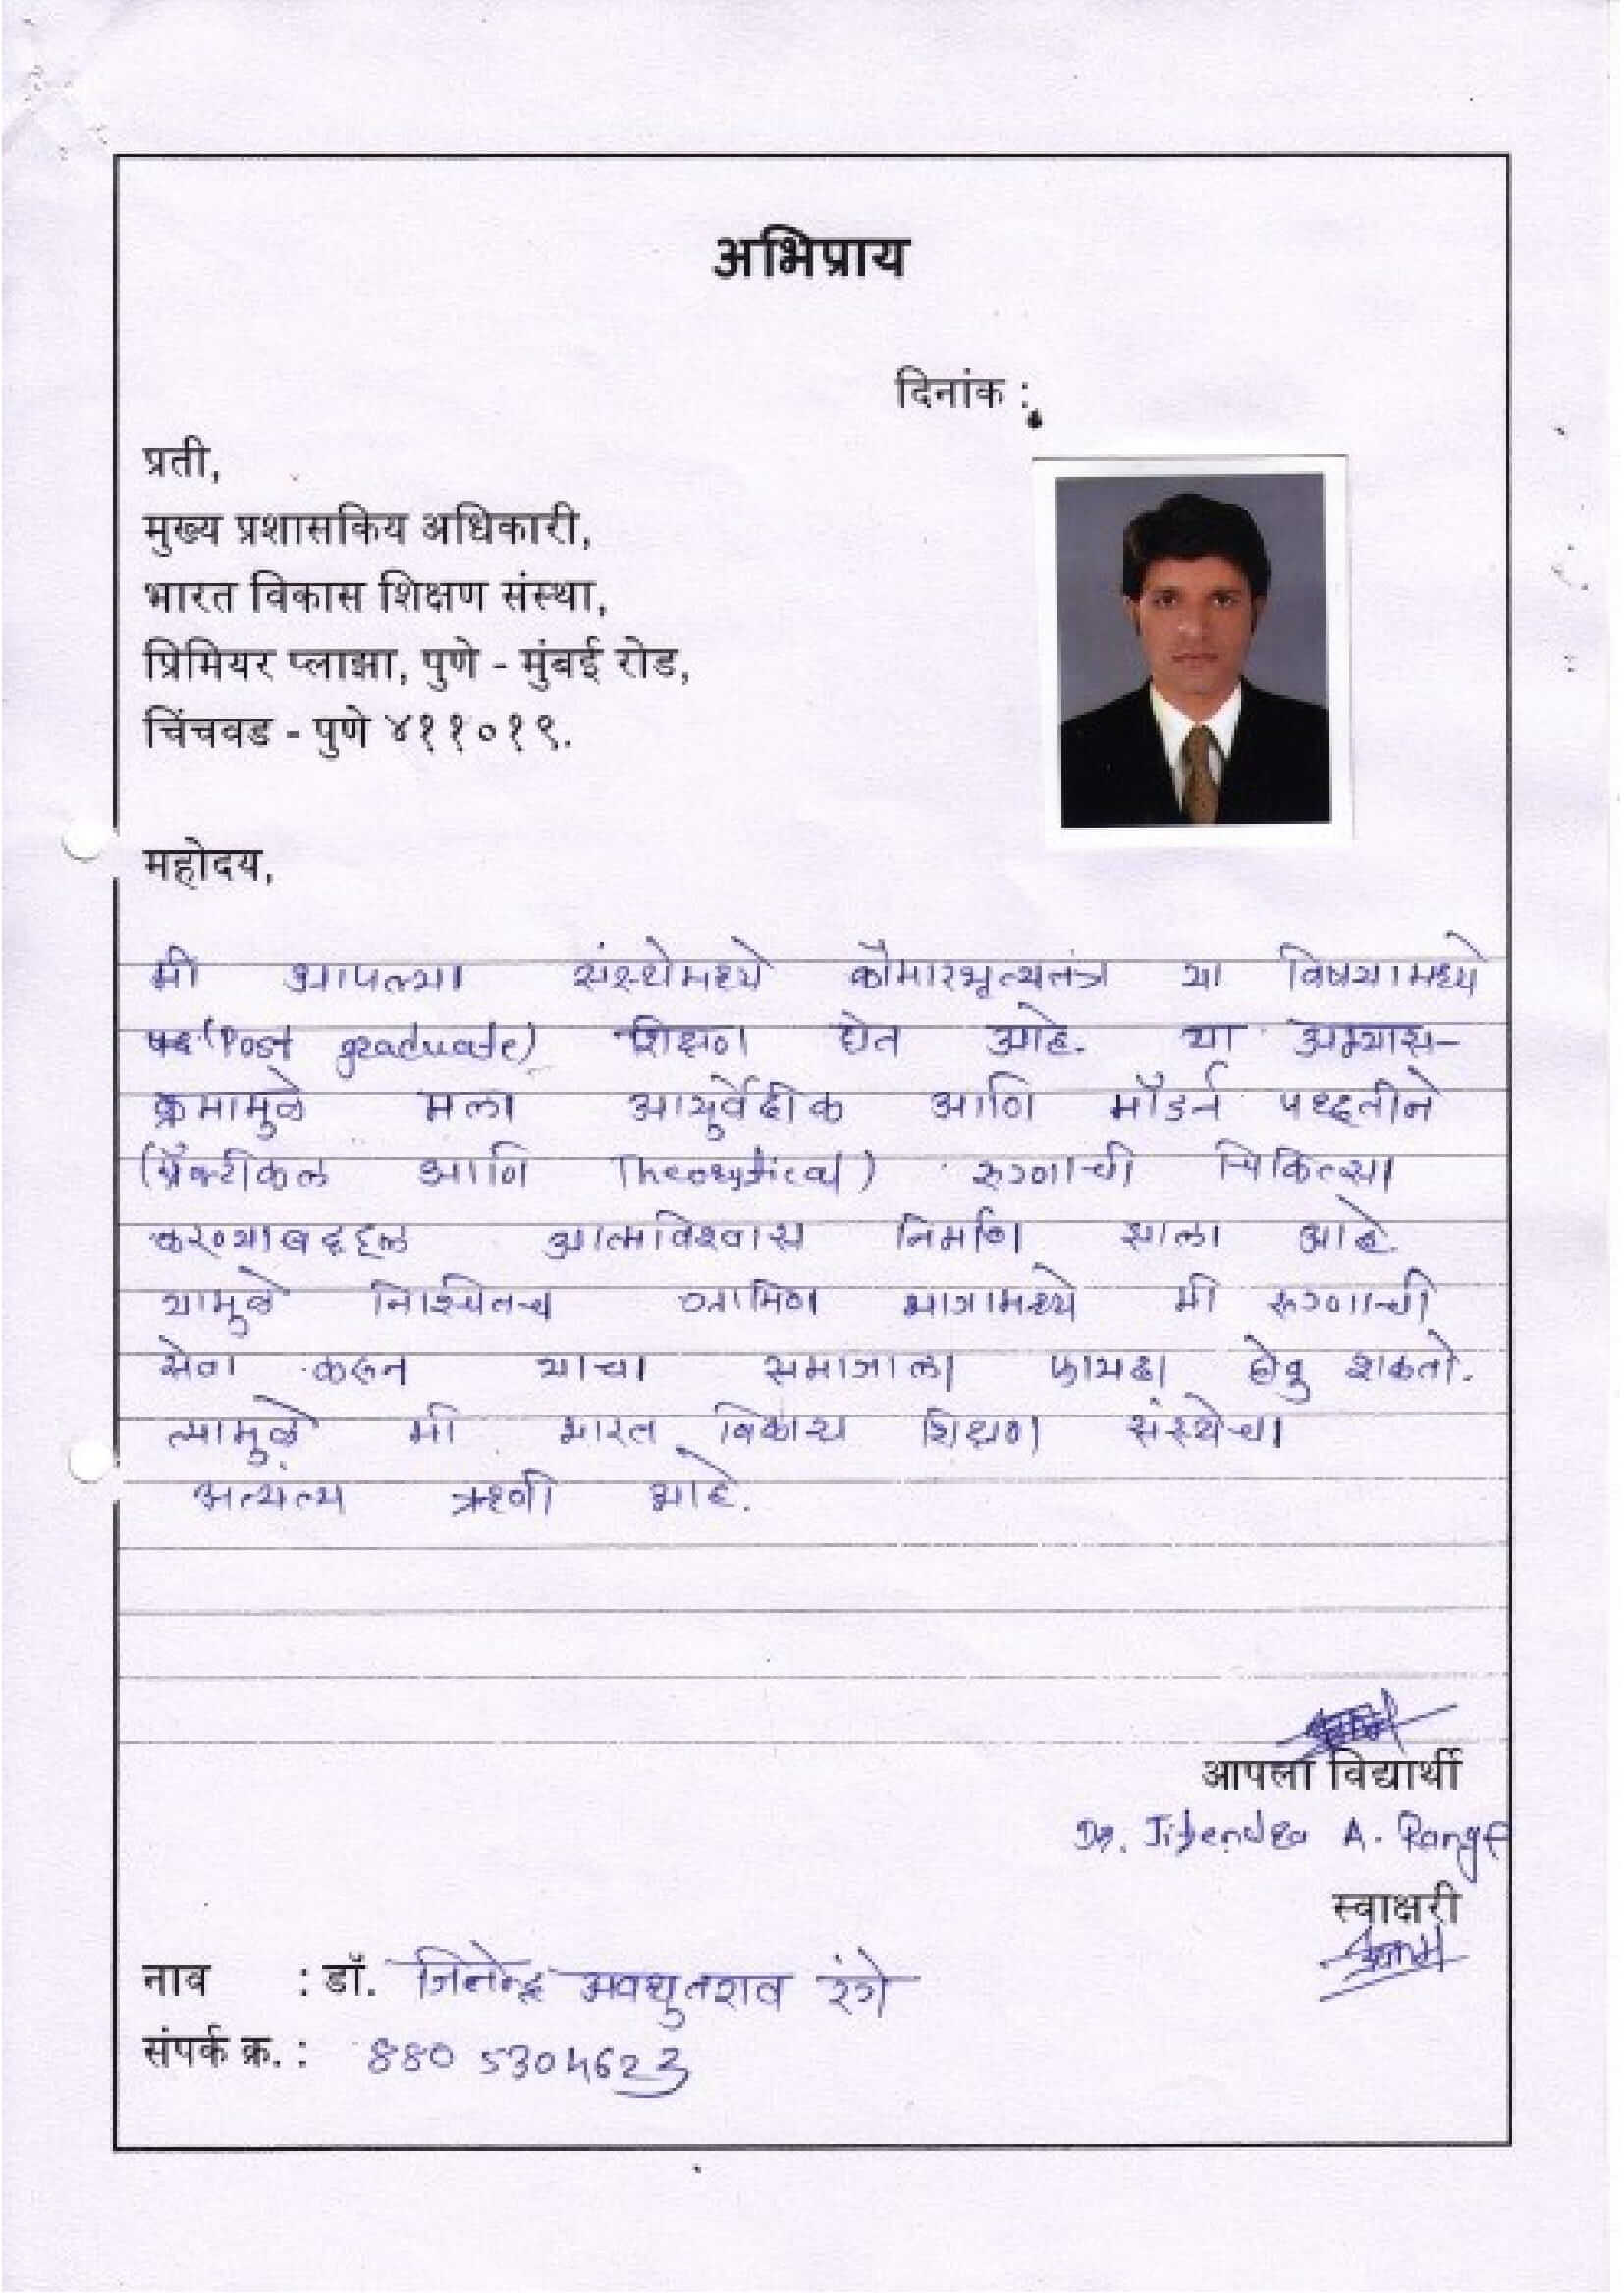 अभिप्राय
दिनांक :
प्रती,
मुख्य प्रशासकिय अधिकारी,
भारत विकास शिक्षण संस्था,
प्रिमियर प्लाझा, पुणे - मुंबई रोड,
चिंचवड - पुणे ४११०१९.
महोदय,
मी आपल्या संस्थेमध्ये कौमारभृत्यतंत्र या विषयामध्ये
(Post graduate) शिक्षण घेत आहे. या अभ्यास-
क्रमामुळे मला आयुर्वेदीक आणि मॉडर्न पध्दतीने
(प्रॅक्टीकल आणि Theorytical) रुग्णाची चिकित्सा
करण्याबद्दल आत्मविश्वास निर्माण झाला आहे.
यामुळे निश्चितच ग्रामिण भागामध्ये मी रुग्णाची
सेवा करुन याचा समाजाला फायदा होवु शकतो.
त्यामुळे मी भारत विकास शिक्षण संस्थेचा
अत्यत्य ऋणी आहे.
आपला विद्यार्थी
Dr. Jitendra A. Range
स्वाक्षरी
नाव : डॉ. जितेन्द्र अवधुतराव रंगे
संपर्क क्र. : 880 5304623